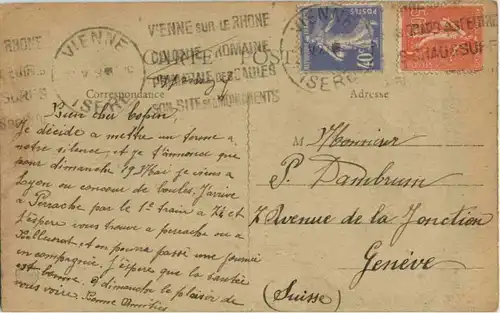 VIENNE SUR LE RHONE
COLONIE ROMAINE
CAPITALE DES GAULES
SON SITE SES MONUMENTS
VIENNE
ISERE
VIENNE
ISERE
RHONE
CARTE POSTALE
Correspondance
Adresse
40c
Bien cher Copain,
Je décide a mettre un terme a
notre silence, et je t'annonce que
pour dimanche 19 Mai je viens a
Lyon au concour de boules. J'arrive
a Perrache par le 1er train a 7h et
j'éspère vous trouvé a perrache ou a
Bellecour, et on pourra passé une journée
en compagnie. J'éspère que la santée
est bonne. A dimanche le plaisir de
vous voire. Bonne Amitiés
M Monsieur
P. Dambrum
7 Avenue de la Jonction
Genève
(Suisse)